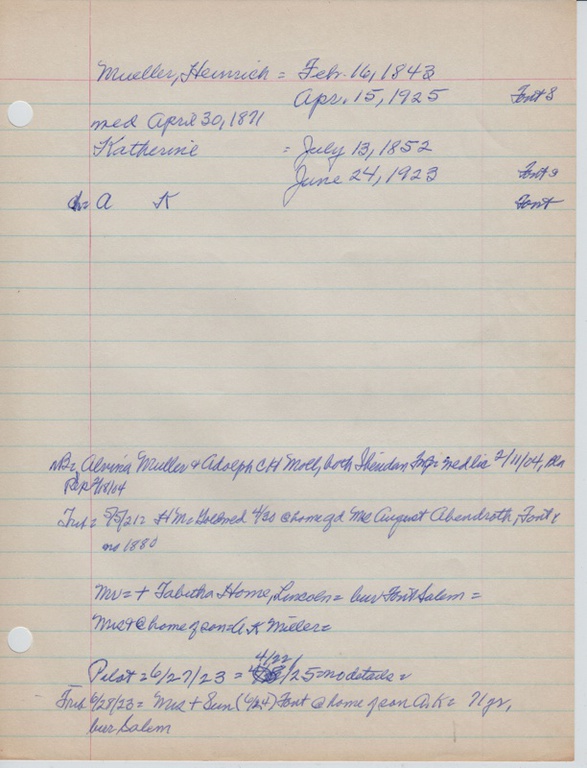 Mueller, Heinrich = Feb. 16, 1843
Apr. 15, 1925 Font 8
med April 30, 1871
Katherine = July 13, 1852
June 24, 1923 Font 9
ch= A K Font
NB= Alvina Muller + Adolph CH Moll, both Sheridan med lic 2/11/04, Bla
Rep 2/18/04
Trib = 5/5/21= H Mr Gold wed 4/30 @ home gd Mrs August Abendroth, Font
no 1880
Mr = + Tabitha Home, Lincoln = bur Font Salem =
Mrs + @ home of son = A. K Miller =
Pilot = 6/27/23 = 4/22/25 = no details =
Trib 6/28/23 = Mrs + Sun (6/24) Font @ home of son A.K = 71 yr,
bur Salem